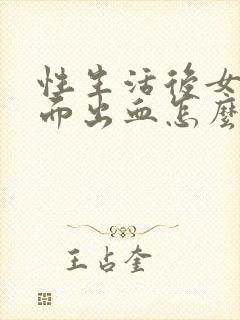 性生活後女
而出血怎麼
王占奎